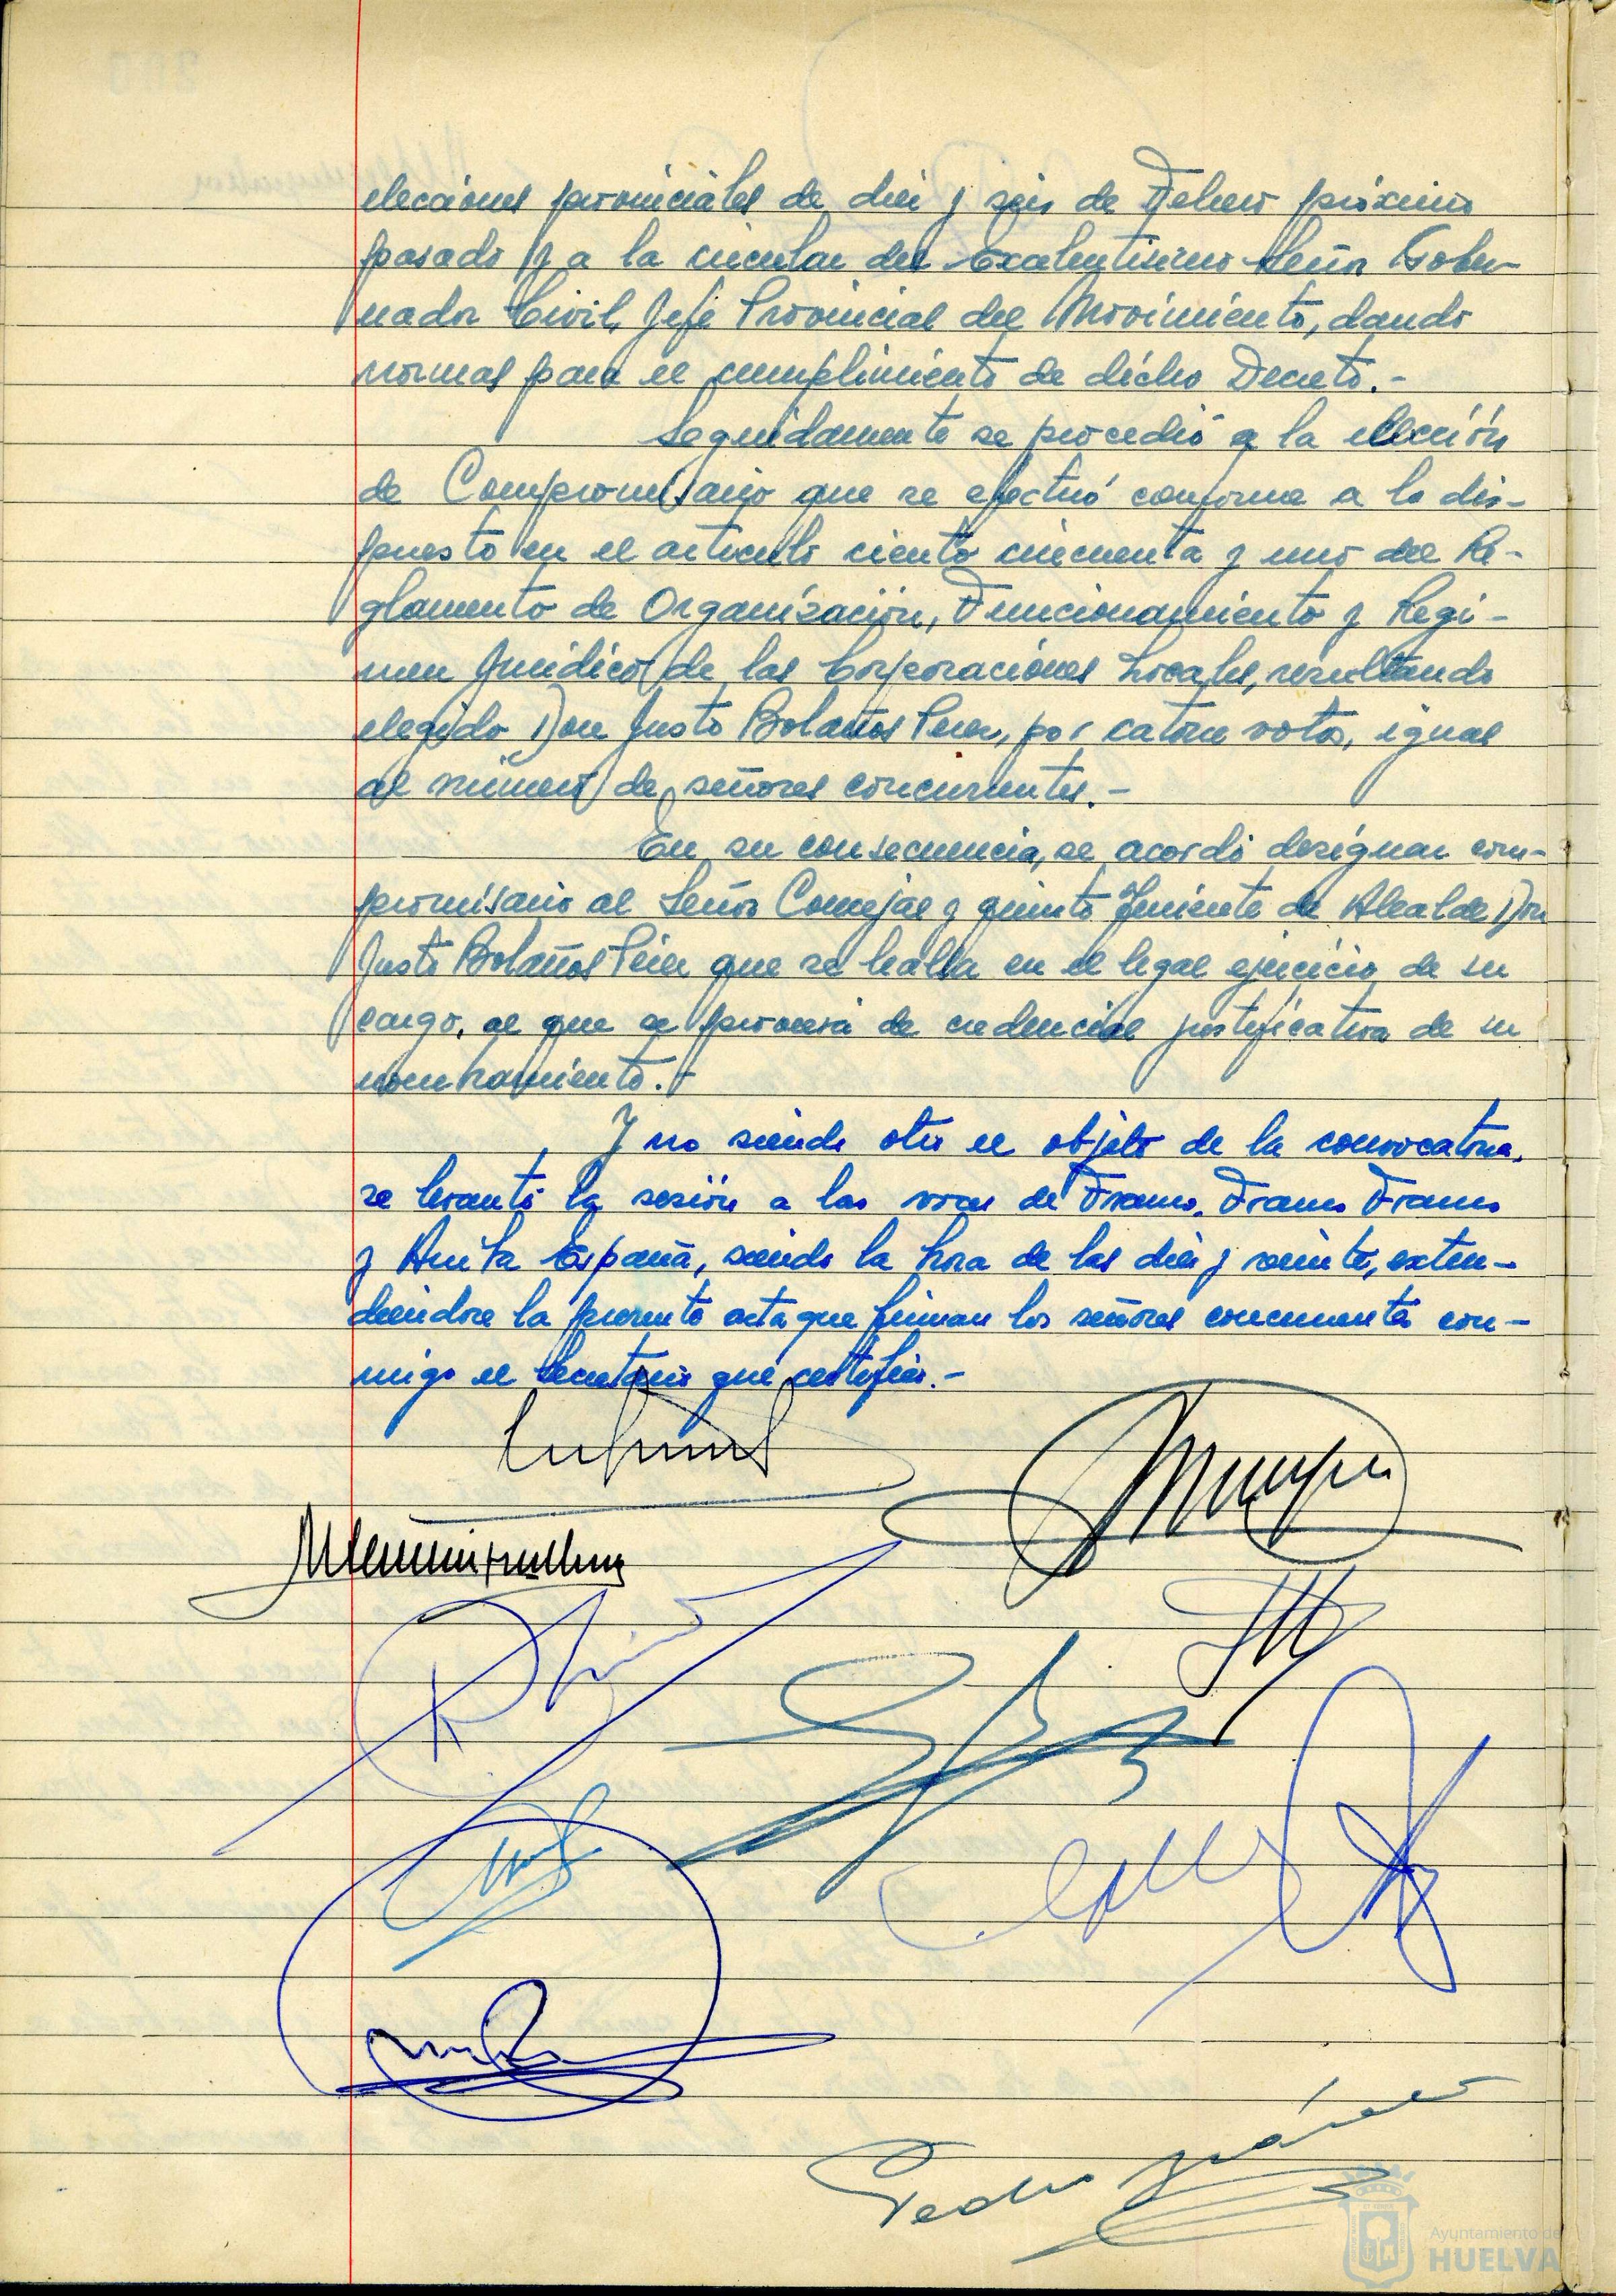 elecciones provinciales de diez y seis de Febrero próximo
pasado y a la circular del Excelentísimo Señor Gober-
nador Civil, Jefe Provincial del Movimiento, dando
normas para el cumplimiento de dicho Decreto.-
Seguidamente se procedió a la elección
de Compromisario que se efectuó conforme a lo dis-
puesto en el artículo ciento cincuenta y uno del Re-
glamento de Organización, Funcionamiento y Regi-
men Jurídico de las Corporaciones Locales, resultando
elegido Don Justo Bolaños Pérez, por catorce votos, igual
al número de señores concurrentes.-
En su consecuencia, se acordó designar com-
promisario al Señor Concejal y quinto Teniente de Alcalde Don
Justo Bolaños Pérez que se halla en el legal ejercicio de su
cargo, al que se proveerá de credencial justificativa de su
nombramiento.-
Y no siendo otro el objeto de la convocatoria,
se levantó la sesión a las voces de Franco, Franco Franco
y Arriba España, siendo la hora de las diez y veinte, exten-
diendose la presente acta que firman los señores concurrentes con-
migo el Secretario que certifico.-
Pedro
Ayuntamiento de
HUELVA